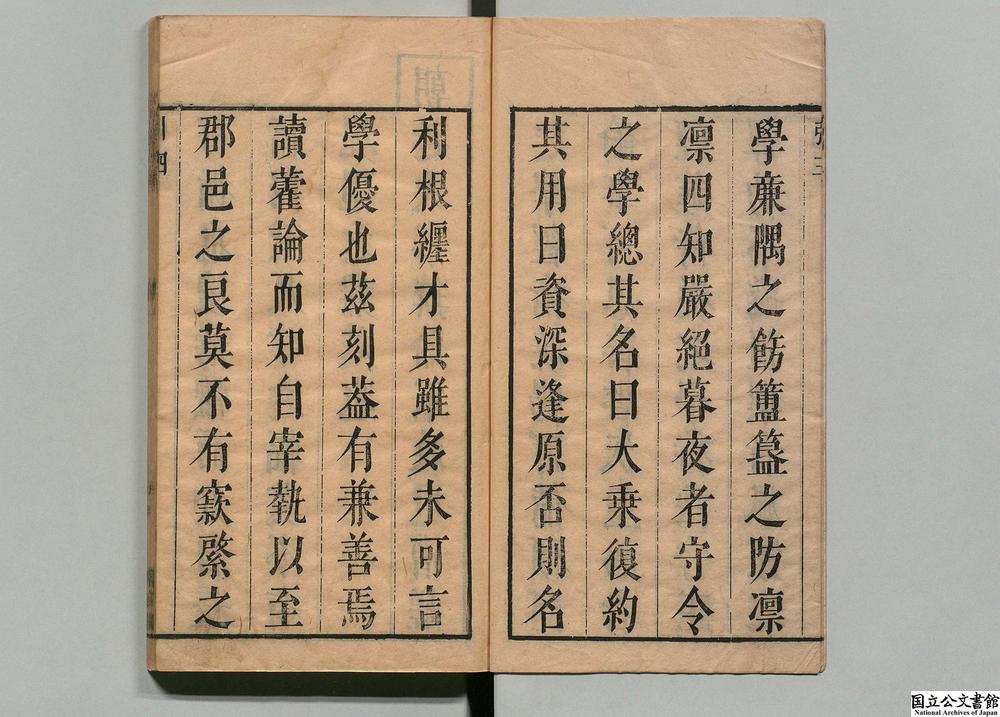 學亷隅之飭簠簋之防凛
凛四知嚴絕暮夜者守令
之學總其名曰大乗復約
其用曰資深逢原否則名
利根纏才具雖多未可言
學優也兹刻葢有兼善焉
讀藿論而知自宰執以至
郡邑之良莫不有窾綮之
国立公文書館
National Archives of Japan